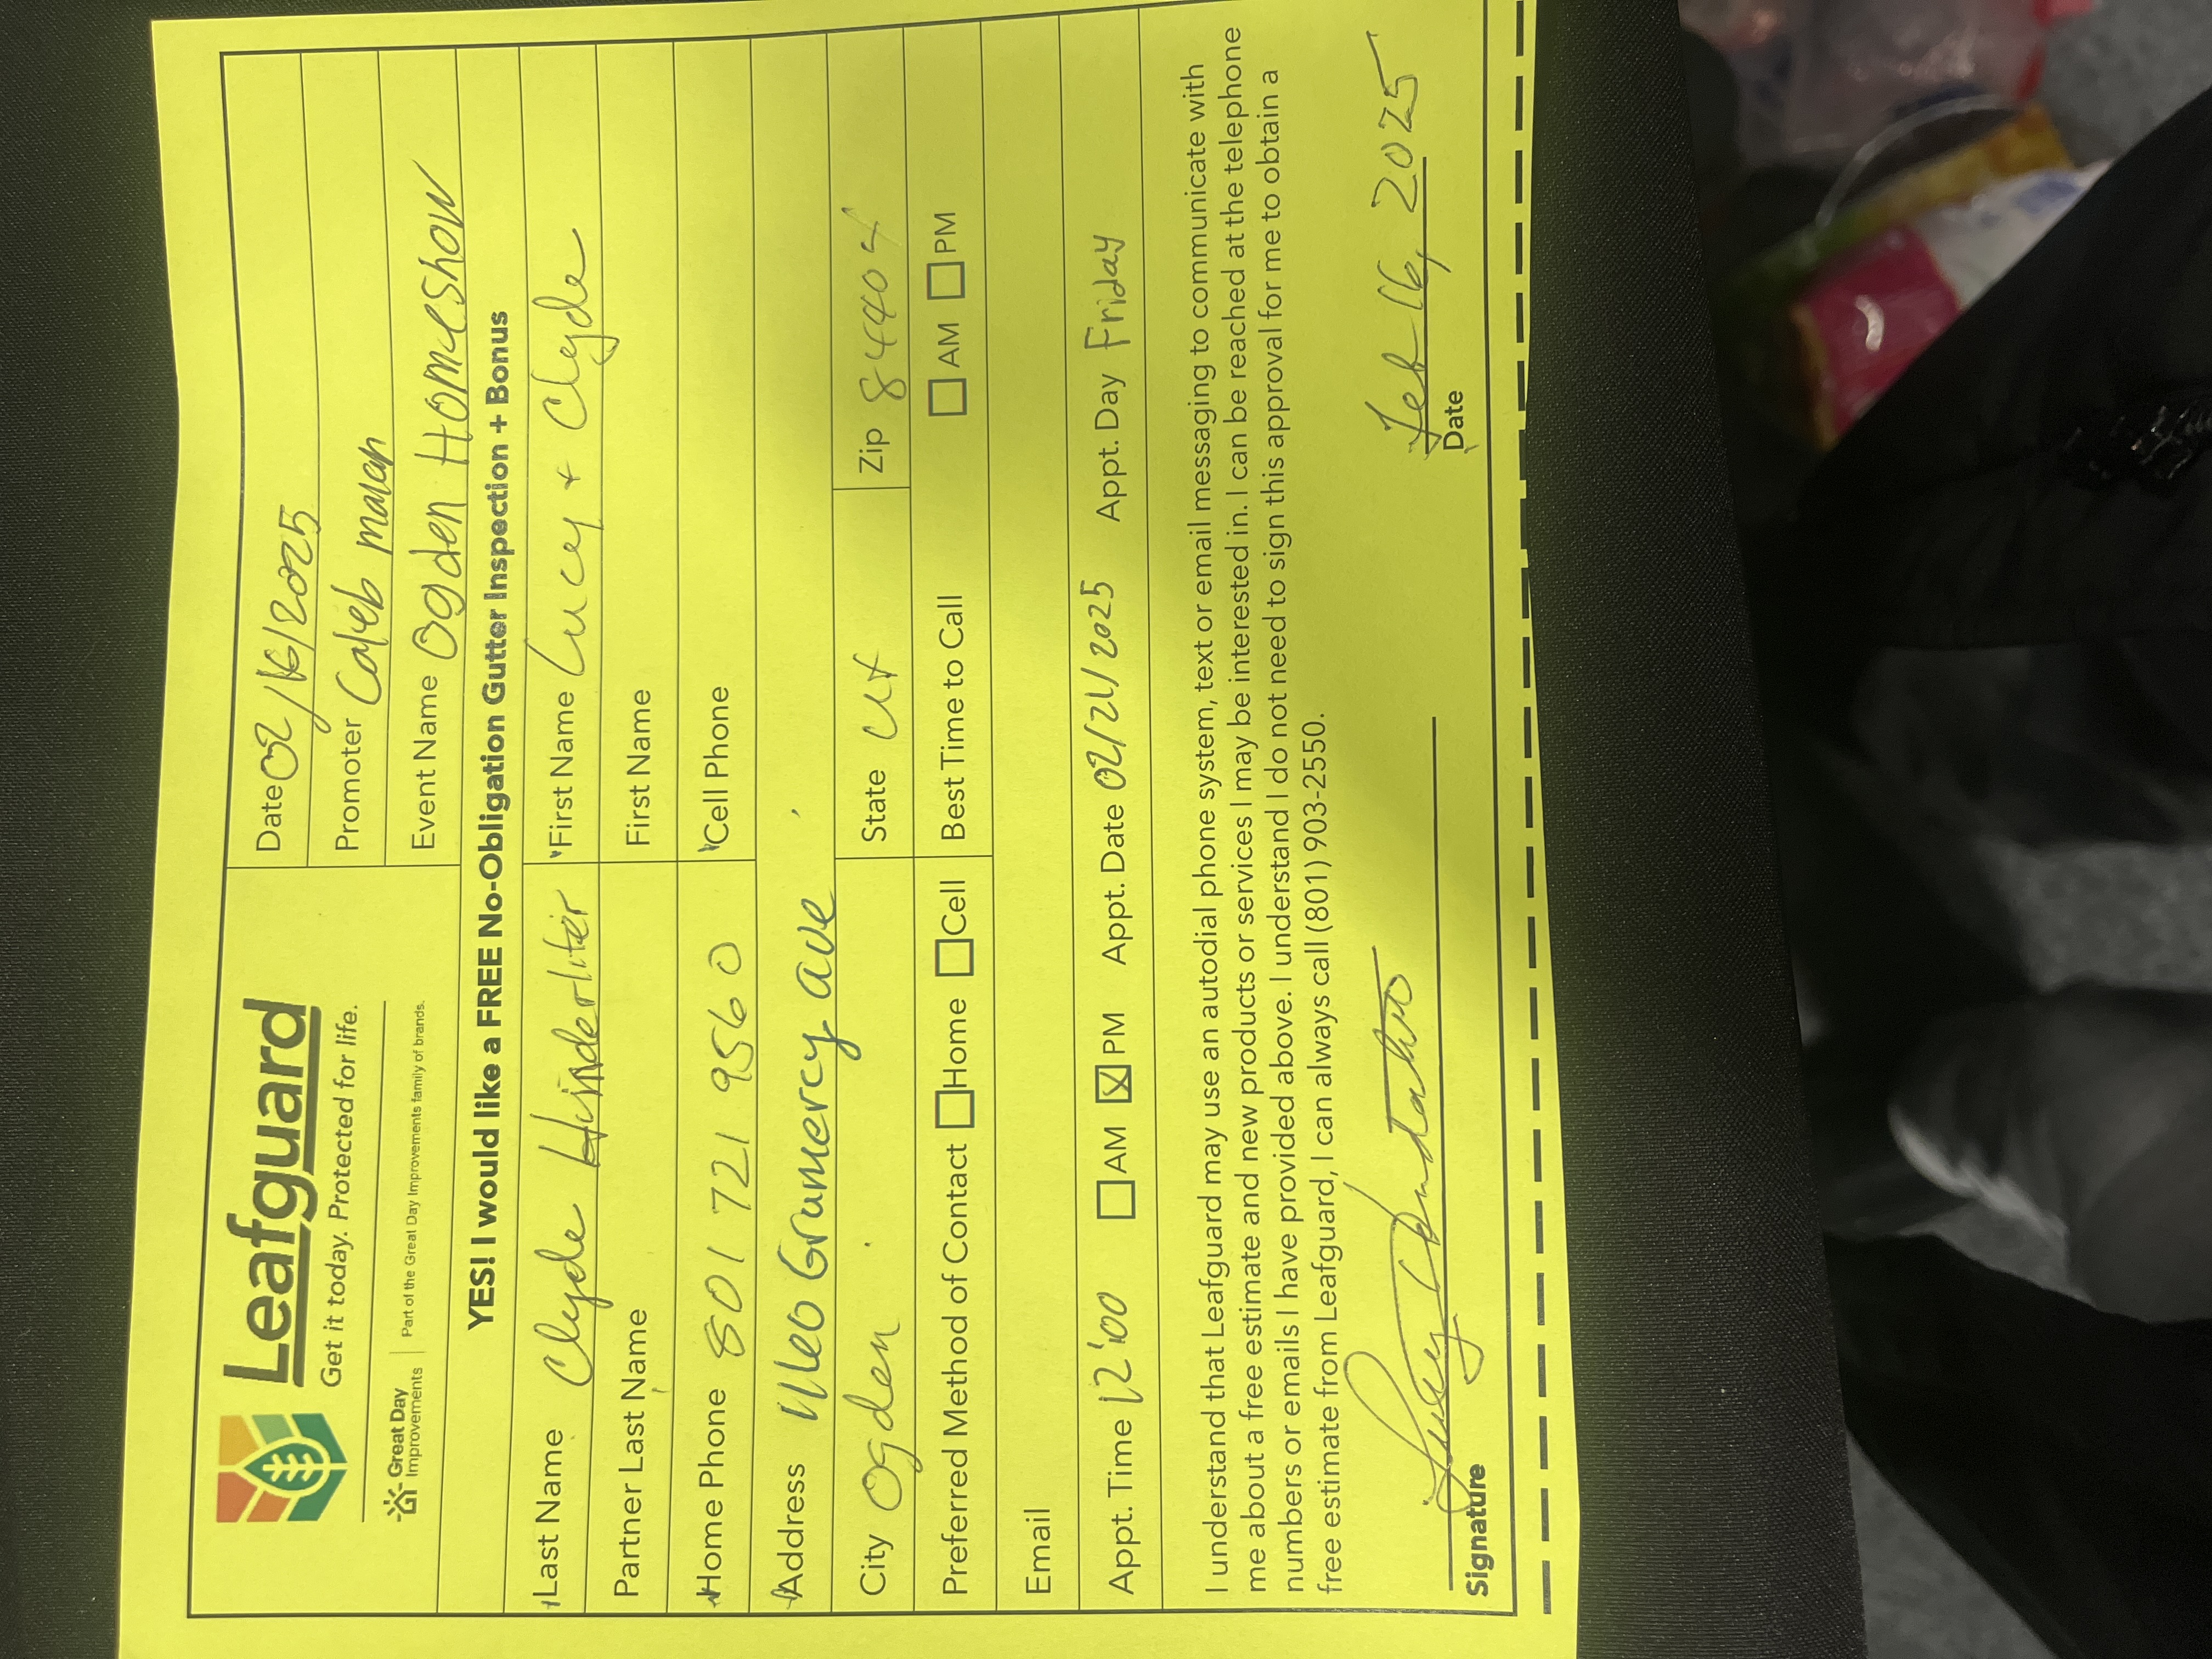 Leafguard
Get it today. Protected for life.
Great Day Improvements
Part of the Great Day Improvements family of brands.
Date 02/16/2025
Promoter Caleb
Event Name Ogden Homeshow
YES! I would like a FREE No-Obligation Gutter Inspection + Bonus
Last Name Clyde Hinderliter First Name Lucy + Clyde
Partner Last Name First Name
Home Phone 801 721 9560 Cell Phone
Address Gramercy ave
City Ogden State Ut Zip 84404
Preferred Method of Contact Home Cell Best Time to Call AM PM
Email
Appt. Time 12:00 AM X PM Appt. Date 02/21/2025 Appt. Day Friday
I understand that Leafguard may use an autodial phone system, text or email messaging to communicate with
me about a free estimate and new products or services I may be interested in. I can be reached at the telephone
numbers or emails I have provided above. I understand I do not need to sign this approval for me to obtain a
free estimate from Leafguard, I can always call (801) 903-2550.
Lucy Feb 16, 2025
Signature Date